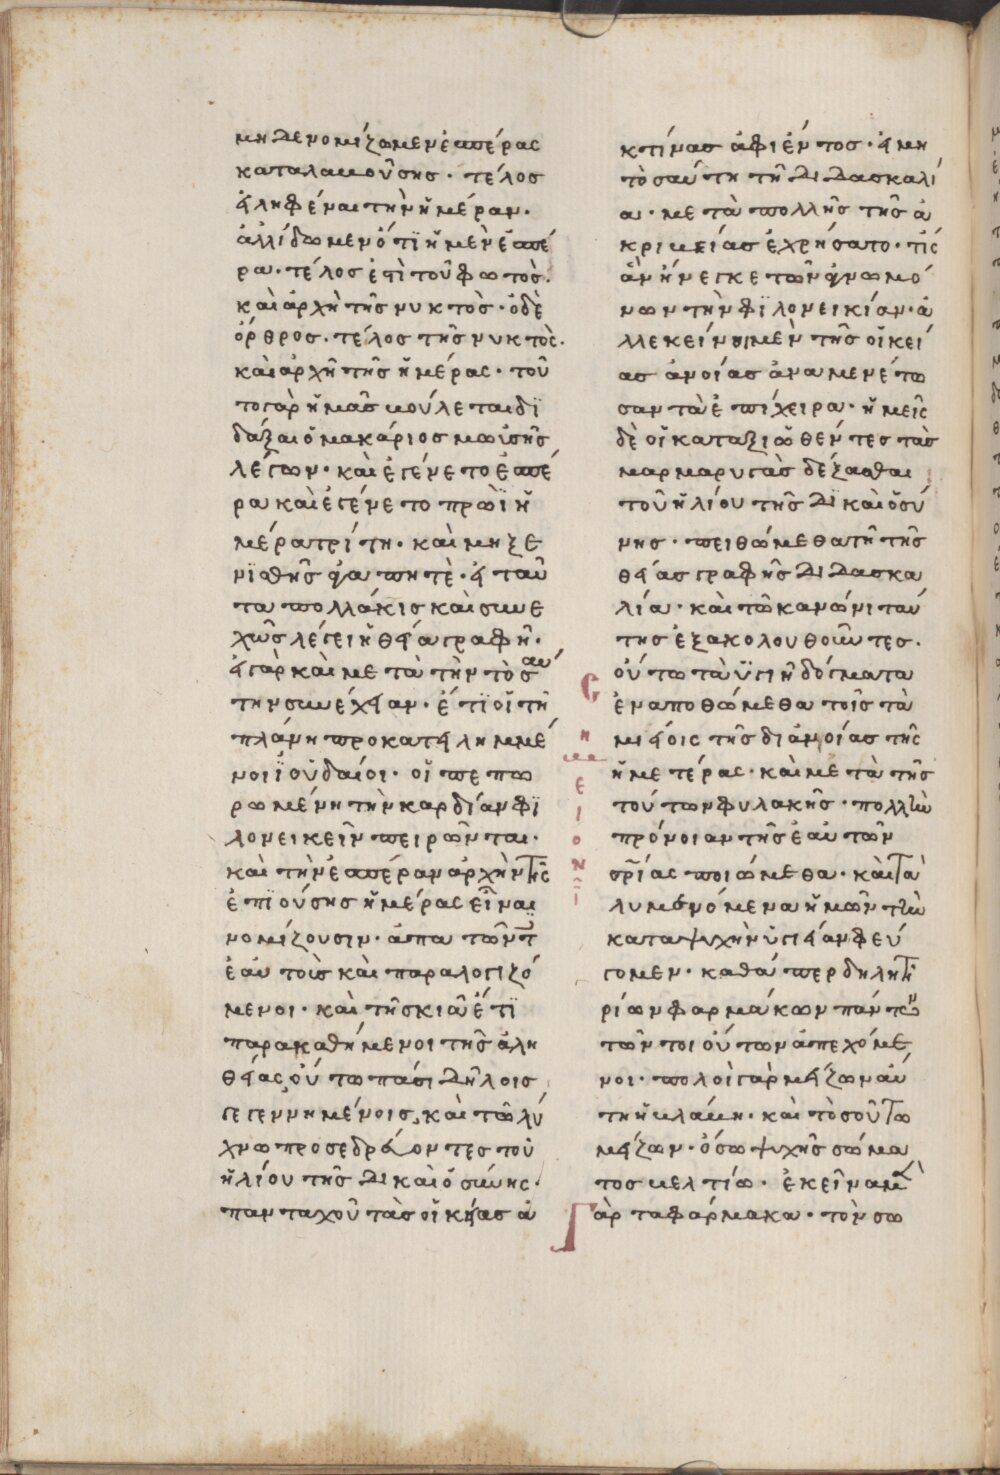 μηδε νομίζωμεν ἑσπέρας
καταλαβούσης· τέλος
εἰληφέναι τὴν ἡμέραν·
ἀλλ ἰδωμεν ὅτι ἡ μὲν ἑσπέ
ρα· τέλος ἐστὶ τοῦ φωτὸς·
καὶ ἀρχὴ τῆς νυκτὸς· ὁ δὲ
ὄρθρος· τέλος τῆς νυκτὸς·
καὶ ἀρχὴ τῆς ἡμέρας· τοῦ
το γὰρ ἡμᾶς βούλεται δι
δάξαι ὁ μακάριος μωϋσῆς
λέγων· καὶ ἐγένετο ἑσπέ
ρα καὶ ἐγένετο πρωῒ ἡ
μέρα τρίτη· καὶ μη ξε
νισθῆς ἀγαπητὲ· εἰ ταῦ
τα πολλάκις καὶ συνε
χῶς λέγει ἡ θεία γραφή·
εἰ γὰρ καὶ μετὰ τὴν τοσαύ
την συνέχειαν· ἔτι οἱ τῆ
πλάνη προκατειλημμέ
νοι ἰουδαίοι· οἱ πεπω
ρωμένη τὴν καρδίαν φι
λονεικεῖν πειρῶνται·
καὶ τὴν ἑσπέραν ἀρχὴν τῆς
ἐπιούσης ἡμέρας εἶναι
νομίζουσιν· ἀπατῶντ
ἑαυτοὺς καὶ παραλογιζό
μενοι· καὶ τῆ σκιᾶ ἔτι
παρακαθήμενοι τῆς ἀλη
θείας οὕτω πᾶσι δήλοις
γεγεννημένοις, καὶ τῶ λύ
χνω προσεδρεύοντες τοῦ
ἡλίου τῆς δικαιοσύνης·
πανταχοῦ τὰς οἰκείας ἀ
κτίνας ἀφιέντος· εἰ μη
τοσαύτη τῆ διδασκαλί
α· μετὰ πολλῆς τῆς ἀ
κριβείας ἐχρήσατο· τίς
ἂν ἤνεγκε τῶν ἀγνωμό
νων τὴν φιλονεικίαν· ἀ
λλ εκείνοι μὲν τῆς οἰκεί
ας ἀνοίας ἀναμενέτω
σαν τὰ ἐπίχειρα· ἡμεῖς
δὲ οἱ καταξιωθέντες τὰς
μαρμαρυγὰς δέξασθαι
τοῦ ἡλίου τῆς δικαιοσύ
νης· πειθώμεθα τῆ τῆς
θείας γραφῆς διδασκα
λία· καὶ τῶ κανώνι ταύ
της ἐξακολουθοῦντες·
οὕτω τὰ ὑγιῆ δόγματα
ἐναποθώμεθα τοῖς τα
μιείοις τῆς διάνοίας τῆς
ἡμετέρας· καὶ μετὰ τῆς
τούτων φυλακῆς· πολλὴν
πρόνοιαν τῆς ἑαυτῶν
σρίας ποιώμεθα· καὶ τὰ
λυμαινόμενα ἡμῶν τὴν
κατα ψυχὴν ὑγιείαν φεύ
γομεν· καθάπερ δηλητη
ρίων φαρμάκων πάντων
τῶν τοιούτων ἀπεχόμε
νοι· πολοὶ γὰρ μείζων αύ
τη ἡ βλάβη· καὶ τοσοῦτω
μείζων· ὅσω ψυχῆς σώμα
τος βελτίω· ἐκεῖνα μὲ
γὰρ τα φάρμακα· τὸν σω
Σημεῖον